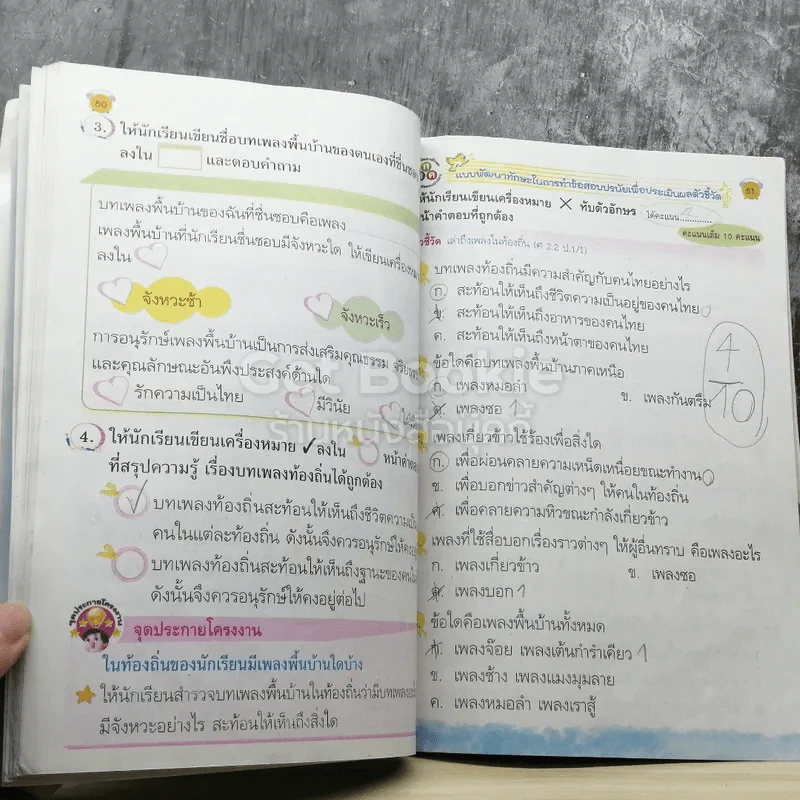 50
3. ให้นักเรียนเขียนชื่อบทเพลงพื้นบ้านของตนเองที่ชื่นชอบ
ลงใน และตอบคำถาม
บทเพลงพื้นบ้านของฉันที่ชื่นชอบคือเพลง
เพลงพื้นบ้านที่นักเรียนชื่นชอบมีจังหวะใด ให้เขียนเครื่องหมาย
ลงใน
จังหวะช้า
จังหวะเร็ว
การอนุรักษ์เพลงพื้นบ้านเป็นการส่งเสริมคุณธรรม
และคุณลักษณะอันพึงประสงค์ด้านใด
รักความเป็นไทย
มีวินัย
4. ให้นักเรียนเขียนเครื่องหมาย ✓ ลงใน หน้า
ที่สรุปความรู้ เรื่องบทเพลงท้องถิ่นได้ถูกต้อง
✓ บทเพลงท้องถิ่นสะท้อนให้เห็นถึงชีวิตความเป็น
คนในแต่ละท้องถิ่น ดังนั้นจึงควรอนุรักษ์ให้
บทเพลงท้องถิ่นสะท้อนให้เห็นถึงฐานะของคน
ดังนั้นจึงควรอนุรักษ์ให้คงอยู่ต่อไป
จุดประกายโครงงาน
จุดประกายโครงงาน
ในท้องถิ่นของนักเรียนมีเพลงพื้นบ้านใดบ้าง
ให้นักเรียนสำรวจบทเพลงพื้นบ้านในท้องถิ่นว่ามีบทเพลง
มีจังหวะอย่างไร สะท้อนให้เห็นถึงสิ่งใด
แบบพัฒนาทักษะในการทำข้อสอบปรนัยเพื่อประเมินผลตัวชี้วัด
51
ให้นักเรียนเขียนเครื่องหมาย × ทับตัวอักษร
หน้าคำตอบที่ถูกต้อง
ได้คะแนน 4
คะแนนเต็ม 10 คะแนน
ตัวชี้วัด เล่าถึงเพลงในท้องถิ่น (ศ 2.2 ป.1/1)
บทเพลงท้องถิ่นมีความสำคัญกับคนไทยอย่างไร
ก. สะท้อนให้เห็นถึงชีวิตความเป็นอยู่ของคนไทย
ข. สะท้อนให้เห็นถึงอาหารของคนไทย
ค. สะท้อนให้เห็นถึงหน้าตาของคนไทย
ข้อใดคือบทเพลงพื้นบ้านภาคเหนือ
ก. เพลงหมอลำ
ข. เพลงกันตรึม
ค. เพลงซอ 1
4
10
เพลงเกี่ยวข้าวใช้ร้องเพื่อสิ่งใด
ก. เพื่อผ่อนคลายความเหน็ดเหนื่อยขณะทำงาน
ข. เพื่อบอกข่าวสำคัญต่างๆ ให้คนในท้องถิ่น
ค. เพื่อคลายความหิวขณะกำลังเกี่ยวข้าว
เพลงที่ใช้สื่อบอกเรื่องราวต่างๆ ให้ผู้อื่นทราบ คือเพลงอะไร
ก. เพลงเกี่ยวข้าว
ข. เพลงซอ
ค. เพลงบอก 1
ข้อใดคือเพลงพื้นบ้านทั้งหมด
ก. เพลงจ๊อย เพลงเต้นกำรำเคียว 1
ข. เพลงช้าง เพลงแมงมุมลาย
ค. เพลงหมอลำ เพลงเราสู้
Got Bookie
ร้านหนังสือกู๊ดนี้